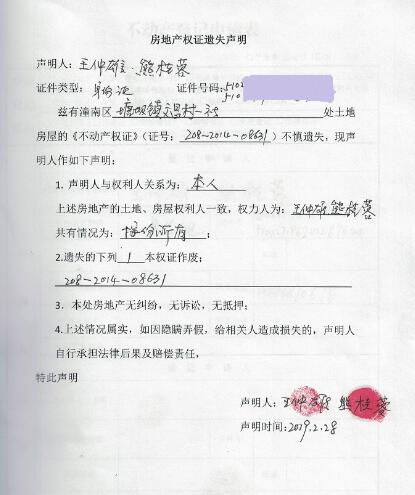 房地产权证遗失声明
声明人：王仲雄、熊桂蓉
证件类型：身份证 证件号码：5102
510
兹有潼南区塘坝镇 村一社处土地
房屋的《不动产权证》（证号：208-2014-08631）不慎遗失，现声
明人作如下声明：
1. 声明人与权利人关系为：本人
上述房地产的土地、房屋权利人一致，权力人为：王仲雄 熊桂蓉
共有情况为：按份所有；
2.遗失的下列 1 本权证作废；
208-2014-08631
3．本处房地产无纠纷，无诉讼，无抵押；
4.上述情况属实，如因隐瞒弄假，给相关人造成损失的，声明人
自行承担法律后果及赔偿责任，
特此声明
声明人：王仲雄 熊桂蓉
声明时间：2019.2.28